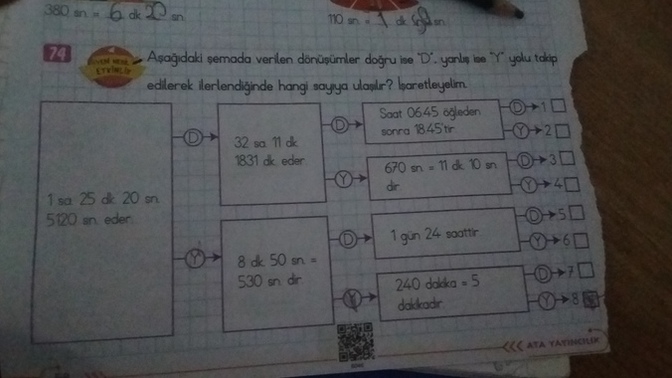 380 sn = 6 dk 20 sn
110 sn = 1 dk sn
74
Aşağıdaki şemada verilen dönüşümler doğru ise "D", yanlış ise "Y" yolu takip
edilerek ilerlendiğinde hangi sayıya ulaşılır? İşaretleyelim.
1 sa 25 dk 20 sn
5120 sn eder.
D
32 sa 11 dk
1831 dk eder
D
Saat 06.45 öğleden
sonra 18.45'tir
D 1
Y 2
Y
670 sn = 11 dk 10 sn
dir
D 3
Y 4
Y
8 dk 50 sn =
530 sn dir
D
1 gün 24 saattir
D 5
Y 6
Y
240 dakika = 5
dakikadır.
D 7
Y 8
ATA YAYINCILIK